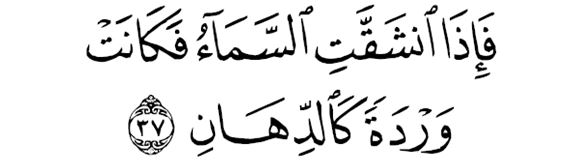 فَإِذَا ٱنشَقَّتِ ٱلسَّمَآءُ فَكَانَتْ
وَرْدَةً كَٱلدِّهَانِ ٣٧